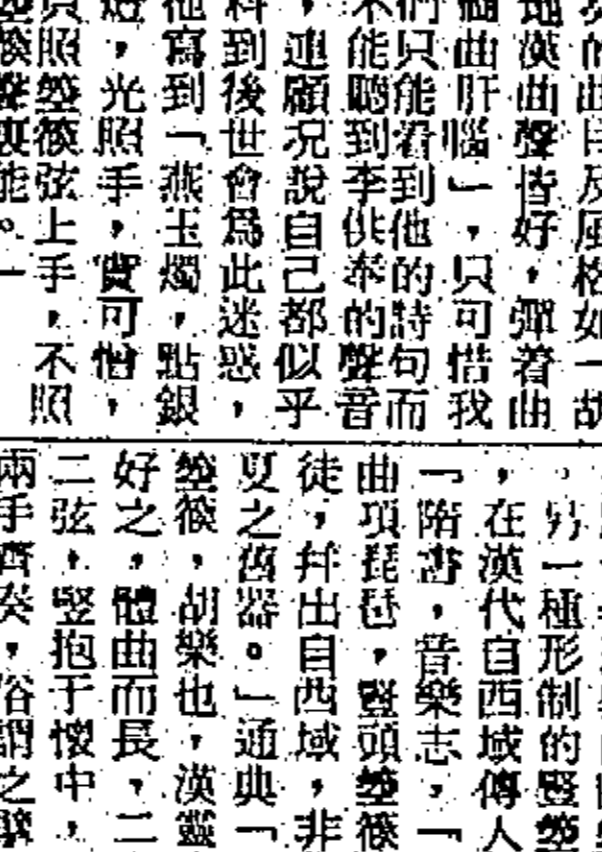 的曲目及風格如一胡
地漢曲聲皆好,彈着曲
曲肝腦」,只可惜我
們只能看到他的詩句而
不能聽到李供奉的聲音
,連顧況說自己都似乎
料到後世會爲此迷惑,
他寫到「燕玉燭,點銀
燈,光照手,實可憎,
照箜篌弦上手,不照
箜篌聲裏能。一
,另一種形制的豎箜
,在漢代自西域傳人
「隋書,音樂志,「
曲項琵琶,豎頭箜篌
徒,幷出自西域,非
夏之舊器。」通典「
箜篌,胡樂也,漢靈
好之,體曲而長,二
二弦,竪抱于懷中,
兩手齊奏,俗謂之擘